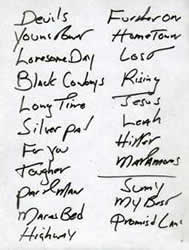 Devils
Lonesome Day
Black Cowboys
Long Time
Silver Pal
For You
Tougher
Part Man
Marias Bed
Highway
Further On
Hometown
Lost
Rising
Jesus
Leah
Hitter
Matamoros
My Best
Promised Lan